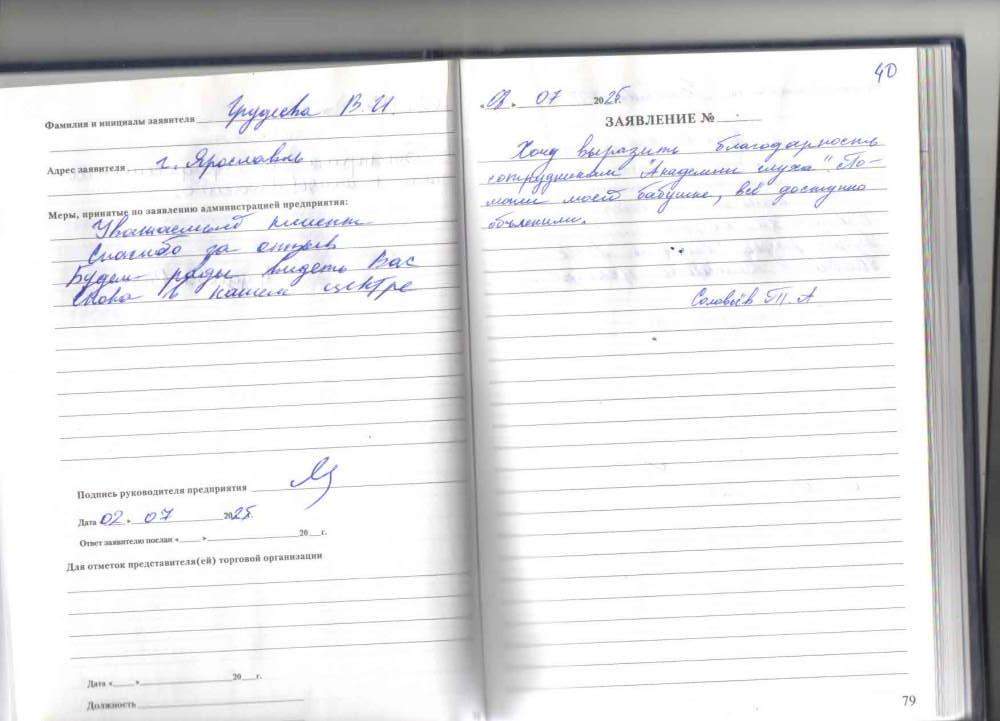 Фамилия и инициалы заявителя Грудцева В.И.
Адрес заявителя г. Ярославль
Меры, принятые по заявлению администрацией предприятия:
Уважаемый клиент
Спасибо за отзыв
Будем рады видеть Вас
снова в нашем центре
Подпись руководителя предприятия
Дата 02 » 07 2025г.
Ответ заявителю послан «___»___ 20__г.
Для отметок представителя(ей) торговой организации
Дата «___»___ 20__г.
Должность
40
« » 07 2025г.
ЗАЯВЛЕНИЕ №
Хочу выразить благодарность
сотрудникам "Академии слуха". По-
могли моей бабушке, всё доступно
объяснили.
Соловьёв П. А
79